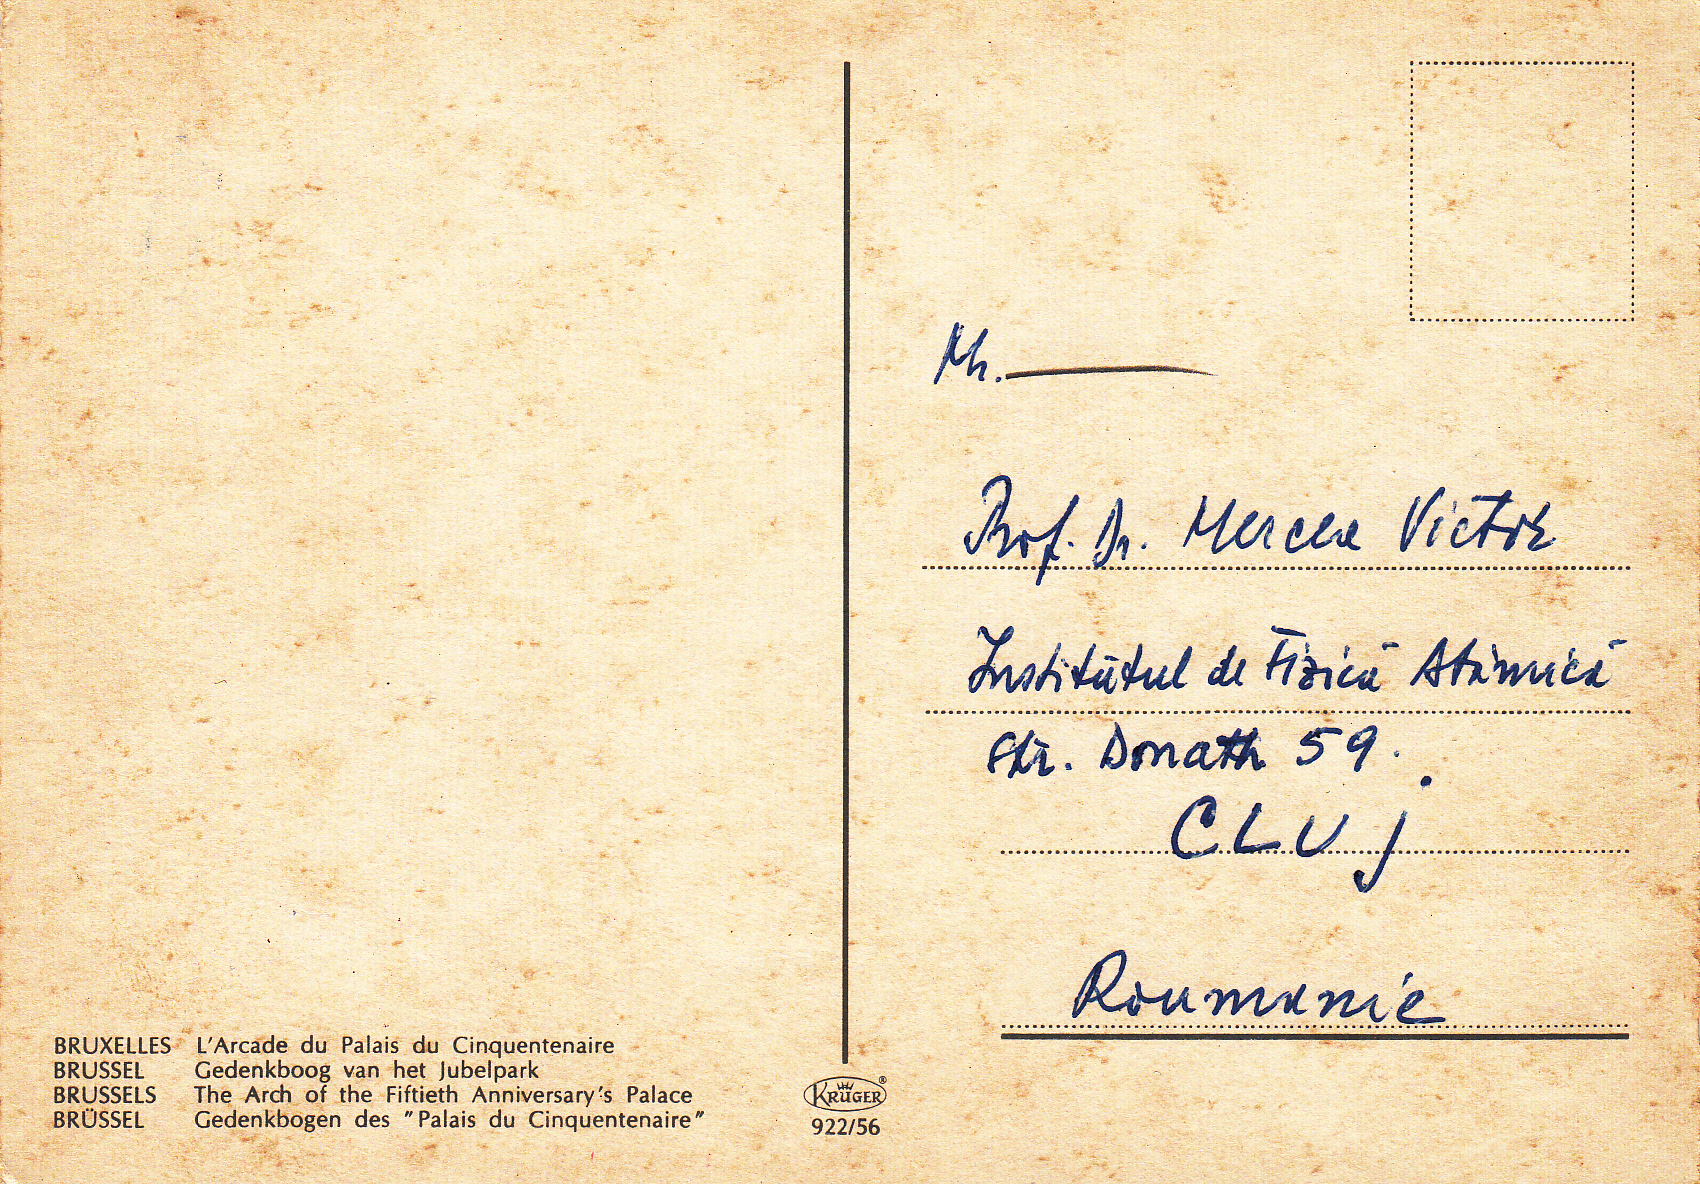 Mr.
Prof. Dr. Mercea Victor
Institutul de Fizică Atomică
str. Donath 59.
CLUJ
Roumanie
BRUXELLES L'Arcade du Palais du Cinquentenaire
BRUSSEL Gedenkboog van het Jubelpark
BRUSSELS The Arch of the Fiftieth Anniversary's Palace
BRÜSSEL Gedenkbogen des "Palais du Cinquentenaire"
KRÜGER®
922/56